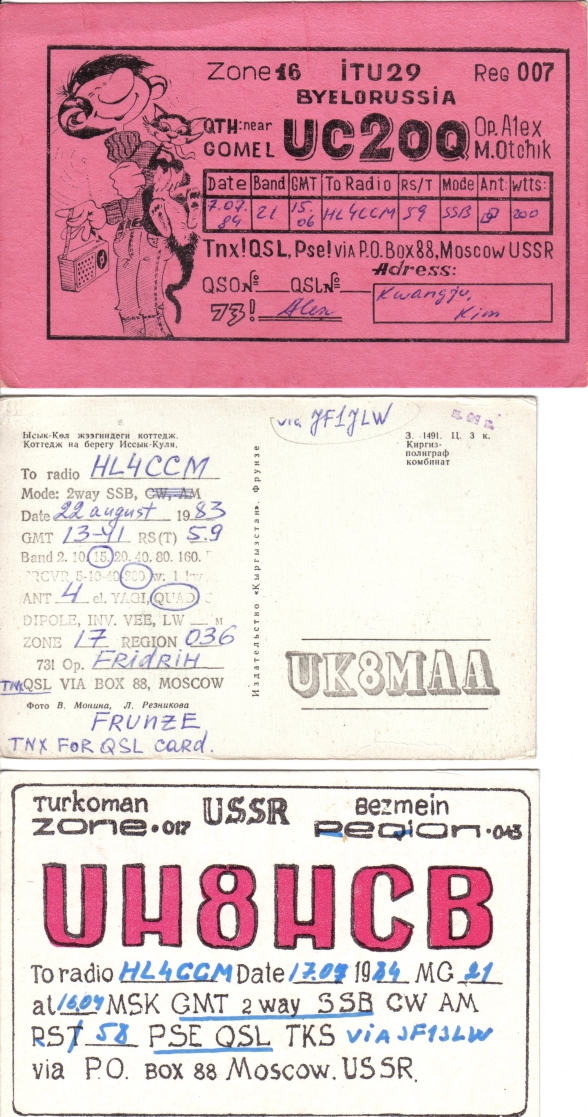 Zone 16 iTU29 Reg 007
BYELORUSSIA
QTH: near UC2OQ Op. Alex
GOMEL M. Otchik
Date Band GMT To Radio RS/T Mode Ant: wtts:
7.07.84 21 15.06 HL4CCM 59 SSB 200
Tnx! QSL, Pse! via P.O. Box 88, Moscow USSR
Adress:
QSO№ QSL№ Kwangju,
73! Alex Kim
via JF1JLW
Ысык-Көл жээгиндеги коттедж.
Коттедж на берегу Иссык-Куля.
З. 1491. Ц. 3 к.
Киргиз-
полиграф
комбинат
To radio HL4CCM
Mode: 2way SSB, CW, AM
Date 22 august 1983
GMT 13-41 RS(T) 5.9
Band 2. 10. 15. 20. 40. 80. 160.
5-10-40-200 w. 1 kw
ANT 4 el. YAGI, QUAD
DIPOLE, INV. VEE, LW M
ZONE 17 REGION 036
73! Op. FRIDRIH
TNX QSL VIA BOX 88, MOSCOW
Фото В. Монина, Л. Резникова
FRUNZE
TNX FOR QSL CARD.
Издательство «Кыргызстан». Фрунзе
UK8MAA
Turkoman USSR Bezmein
Zone. 017 Region. 043
UH8HCB
To radio HL4CCM Date 17.07 1984 MG 21
at 16.04 MSK GMT 2 way SSB CW AM
RST 58 PSE QSL TKS via JF1JLW
via P.O. BOX 88 Moscow. USSR.